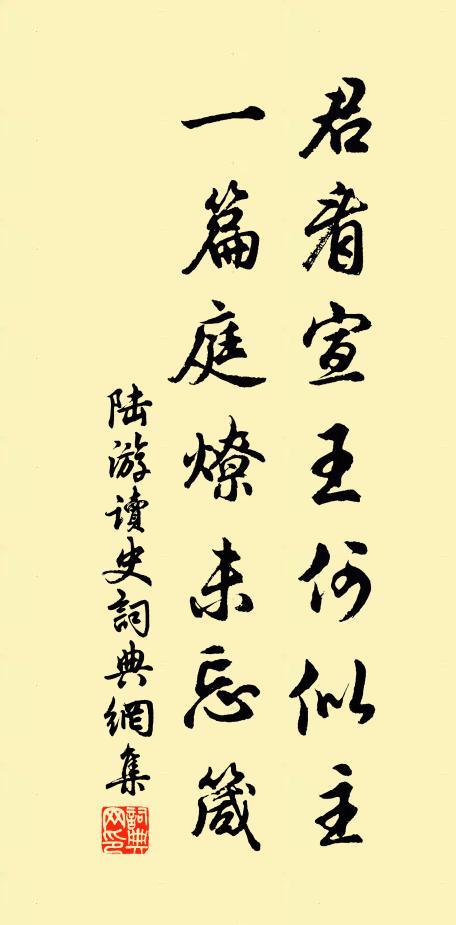 君看宣王何似主
一篇庭燎未忘箴
陆游讀史詞典網集
詞典网印